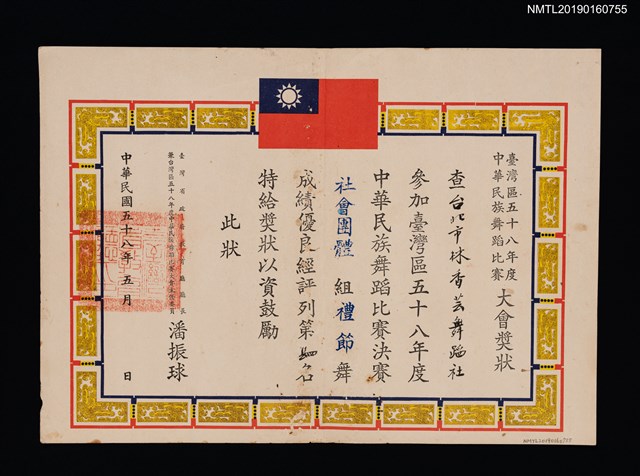 NMTL20190160755
臺灣區五十八年度
中華民族舞蹈比賽
大會獎狀
查台北市珠香芸舞蹈社
參加臺灣區五十八年度
中華民族舞蹈比賽決賽
社會團體組禮節舞
成績優良經評列第四名
特給獎狀以資鼓勵
此狀
潘振球
中華民國五十八年五月日
NMTL20190160755